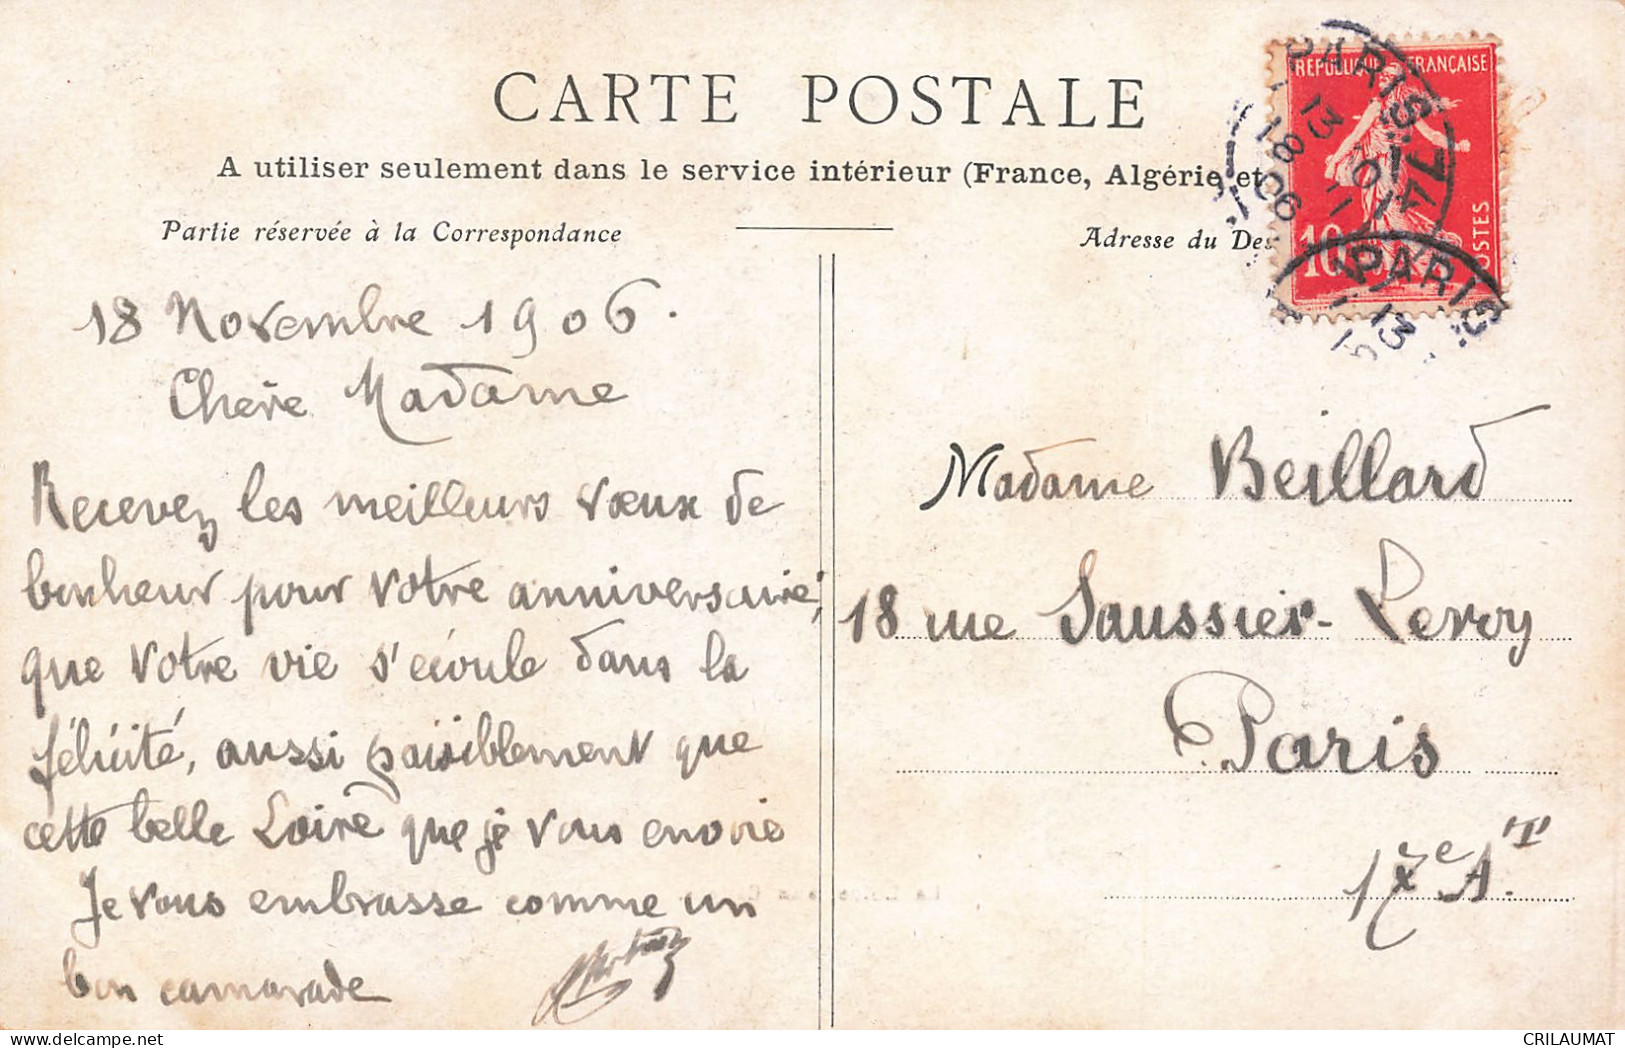 CARTE POSTALE
A utiliser seulement dans le service intérieur (France, Algérie et
Partie réservée à la Correspondance
Adresse du Des
RÉPUBLIQUE FRANÇAISE
10
POSTES
PARIS
13
18
06
PARIS
13
18 Novembre 1906.
Chère Madame
Recevez les meilleurs vœux de
bonheur pour votre anniversaire,
que votre vie s'écoule dans la
félicité, aussi paisiblement que
cette belle Loire que je vous envoie
Je vous embrasse comme un
bon camarade
Madame Beillard
18 rue Saussier-Leroy
Paris
17e AT
CRILAUMAT